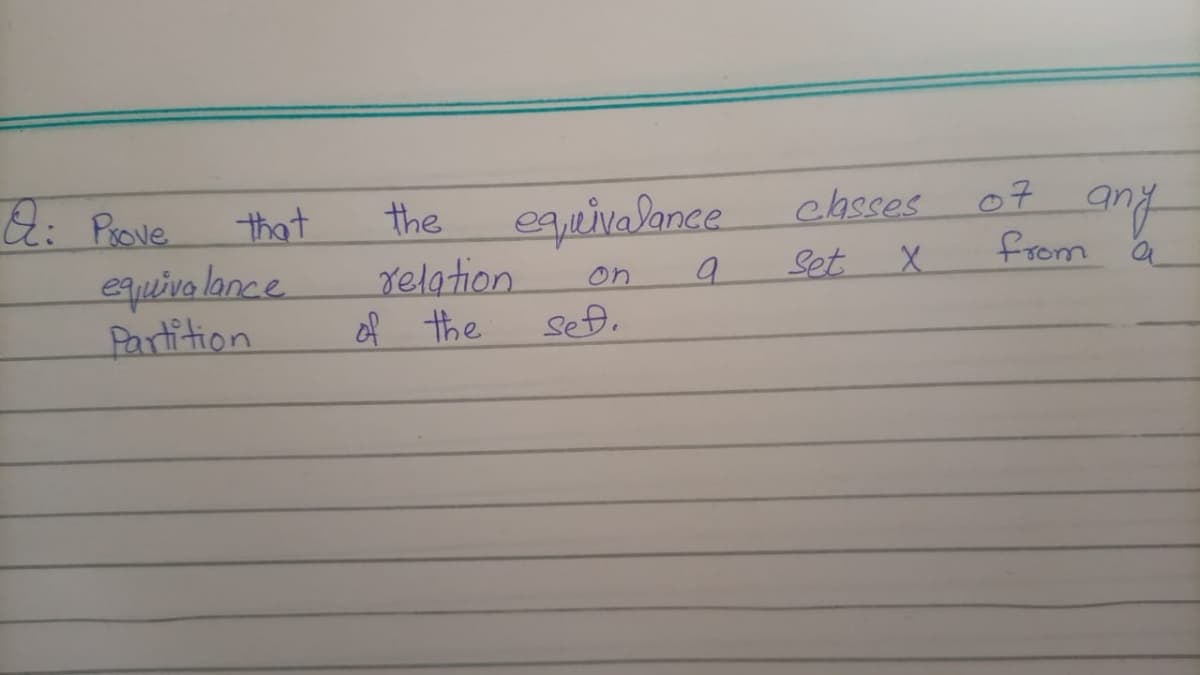 Q: Prove that the equivalance classes of any
equivalance relation on a set X from a
Partition of the set.